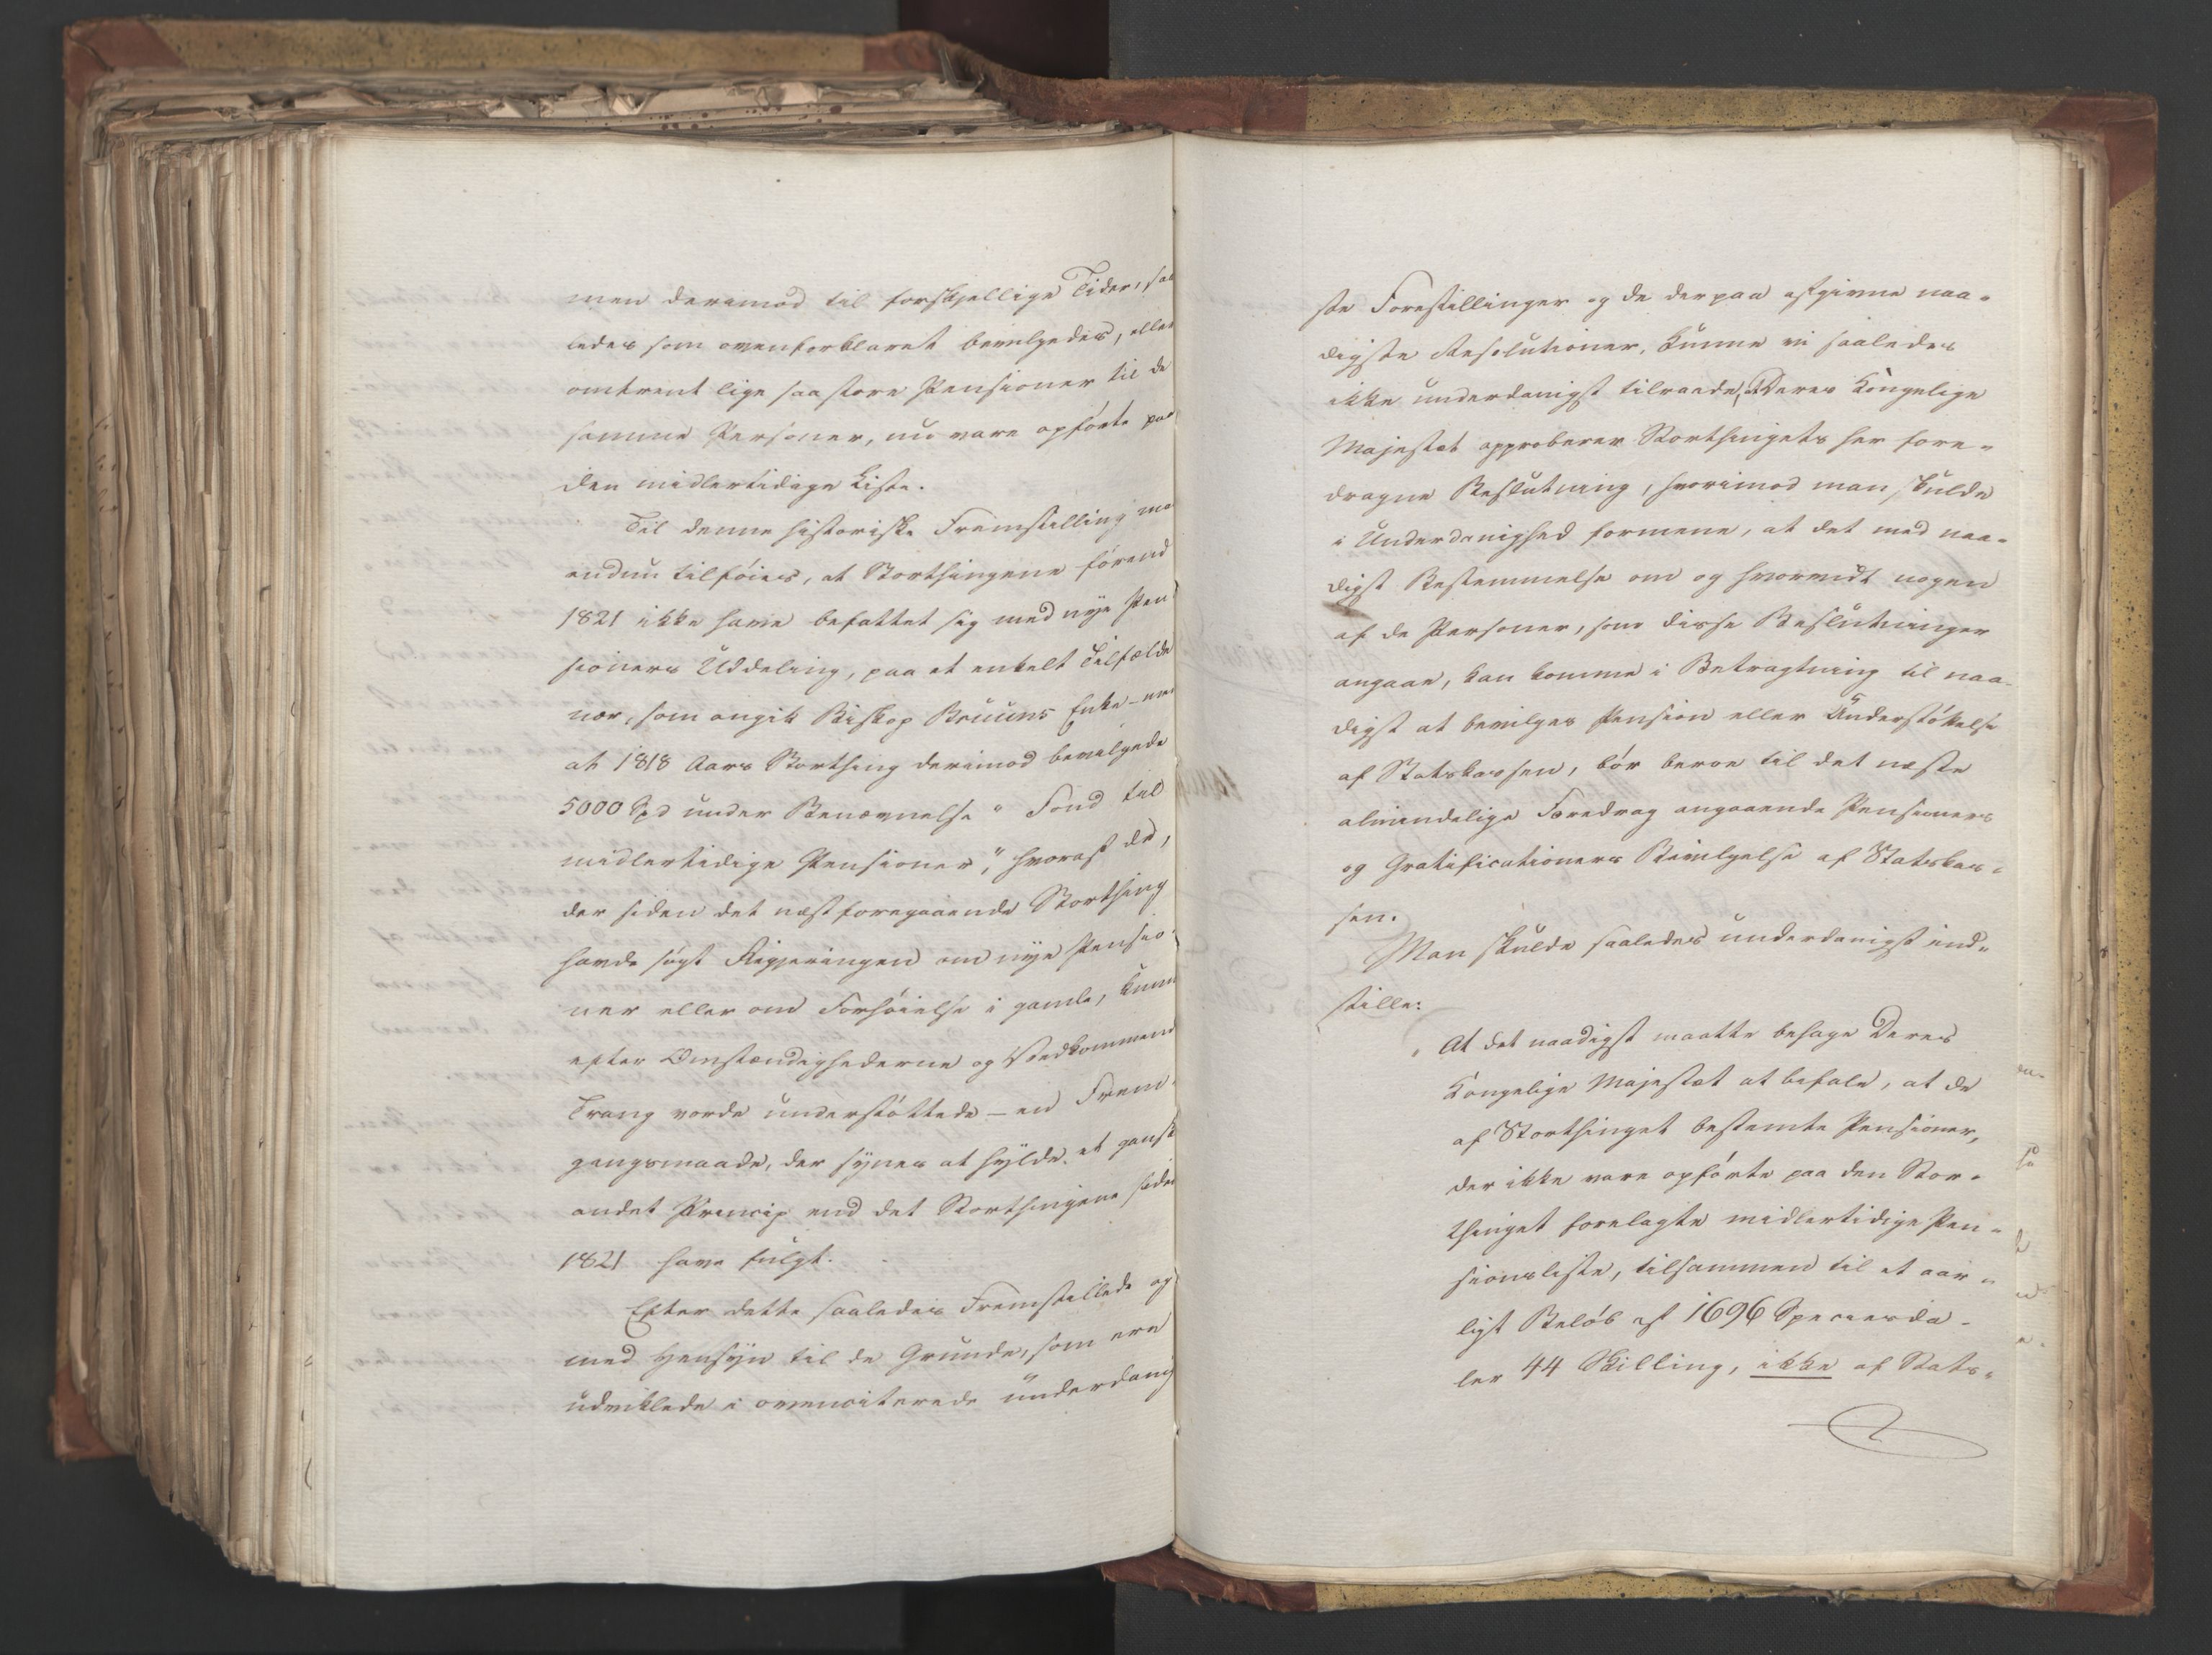 men deremod til forskjellige Tider, saa
ledes som ovenforklaret bevilgedes, eller
omtrent lige saa store Pensioner til de
samme Personer, nu vare opførte paa
den midlertidige Liste.
Til denne historiske Fremstilling maa
endnu tilføies, at Storthingene førend
1821 ikke have befattet sig med nye Pen
sioners Uddeling, paa et enkelt Tilfælde
nær, som angik Biskop Bruuns Enke –
at 1818 Aars Storthing derimod bevilgede
5000 Spd under Benævnelse "Fond til
midlertidige Pensioner," hvoraf de,
der siden det næstforegaaende Storthing
havde søgt Regjeringen om nye Pensio-
ner eller om Forhøielse i gamle, kunne
efter Omstændighederne og Vedkommende
Trang vorde understøttede – en Frem-
gangsmaade, der synes at hylde et gansk
andet Princip end det Storthingene siden
1821 have fulgt.
Efter dette saaledes Fremstillede og
med Hensyn til de Grunde, som ere
udviklede i ovenciterede underdanig
ste Forestillinger og de derpaa afgivne naa-
digste Resolutioner, kunne vi saaledes
ikke underdanigst tilraade, Deres Kongelige
Majestæt approberer Storthingets her fore-
dragne Beslutning, hvorimod man skulde
i Underdanighed formene, at det med naa-
digst Bestemmelse om og hvorvidt nogen
af de Personer, som disse Beslutninger
angaae, kan komme i Betragtning til naa-
digst at bevilges Pension eller Understøttelse
af Statskassen, bør beroe til det næste
almindelige Foredrag angaaende Pensioners
og Gratificationers Bevilgelse af Statskas-
sen.
Man skulde saaledes underdanigst ind-
stille:
At det naadigst maatte behage Deres
Kongelige Majestæt at befale, at de
af Storthinget bestemte Pensioner,
der ikke vare opførte paa den Stor-
thinget forelagte midlertidige Pen-
sionsliste, tilsammen til et aar-
ligt Beløb af 1696 Speciesda-
ler 44 Skilling, ikke af Stats-